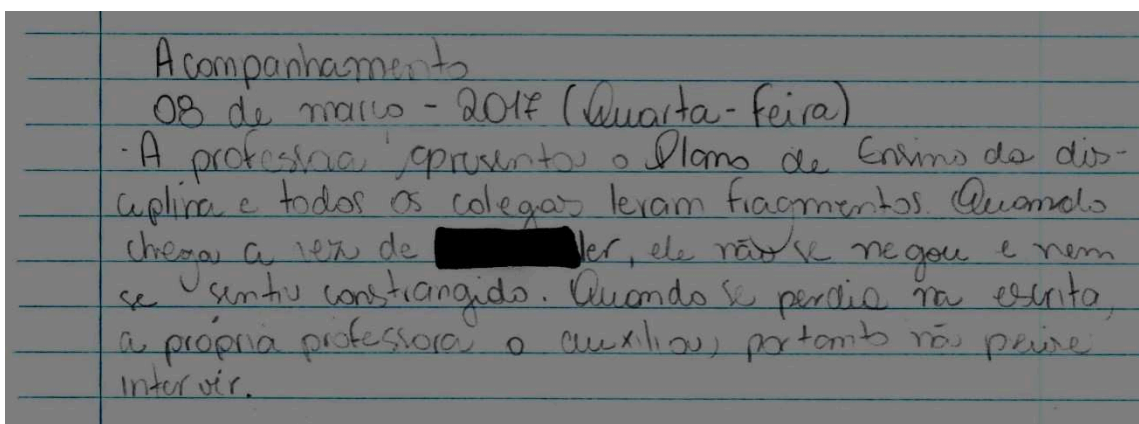 Acompanhamento
08 de março - 2017 (Quarta-feira)
- A professora apresentou o Plano de Ensino da dis-
ciplina e todos os colegas leram fragmentos. Quando
chega a vez de ler, ele não se negou e nem
se sentiu constrangido. Quando se perdia na escrita,
a própria professora o auxiliou, portanto não precisei
intervir.